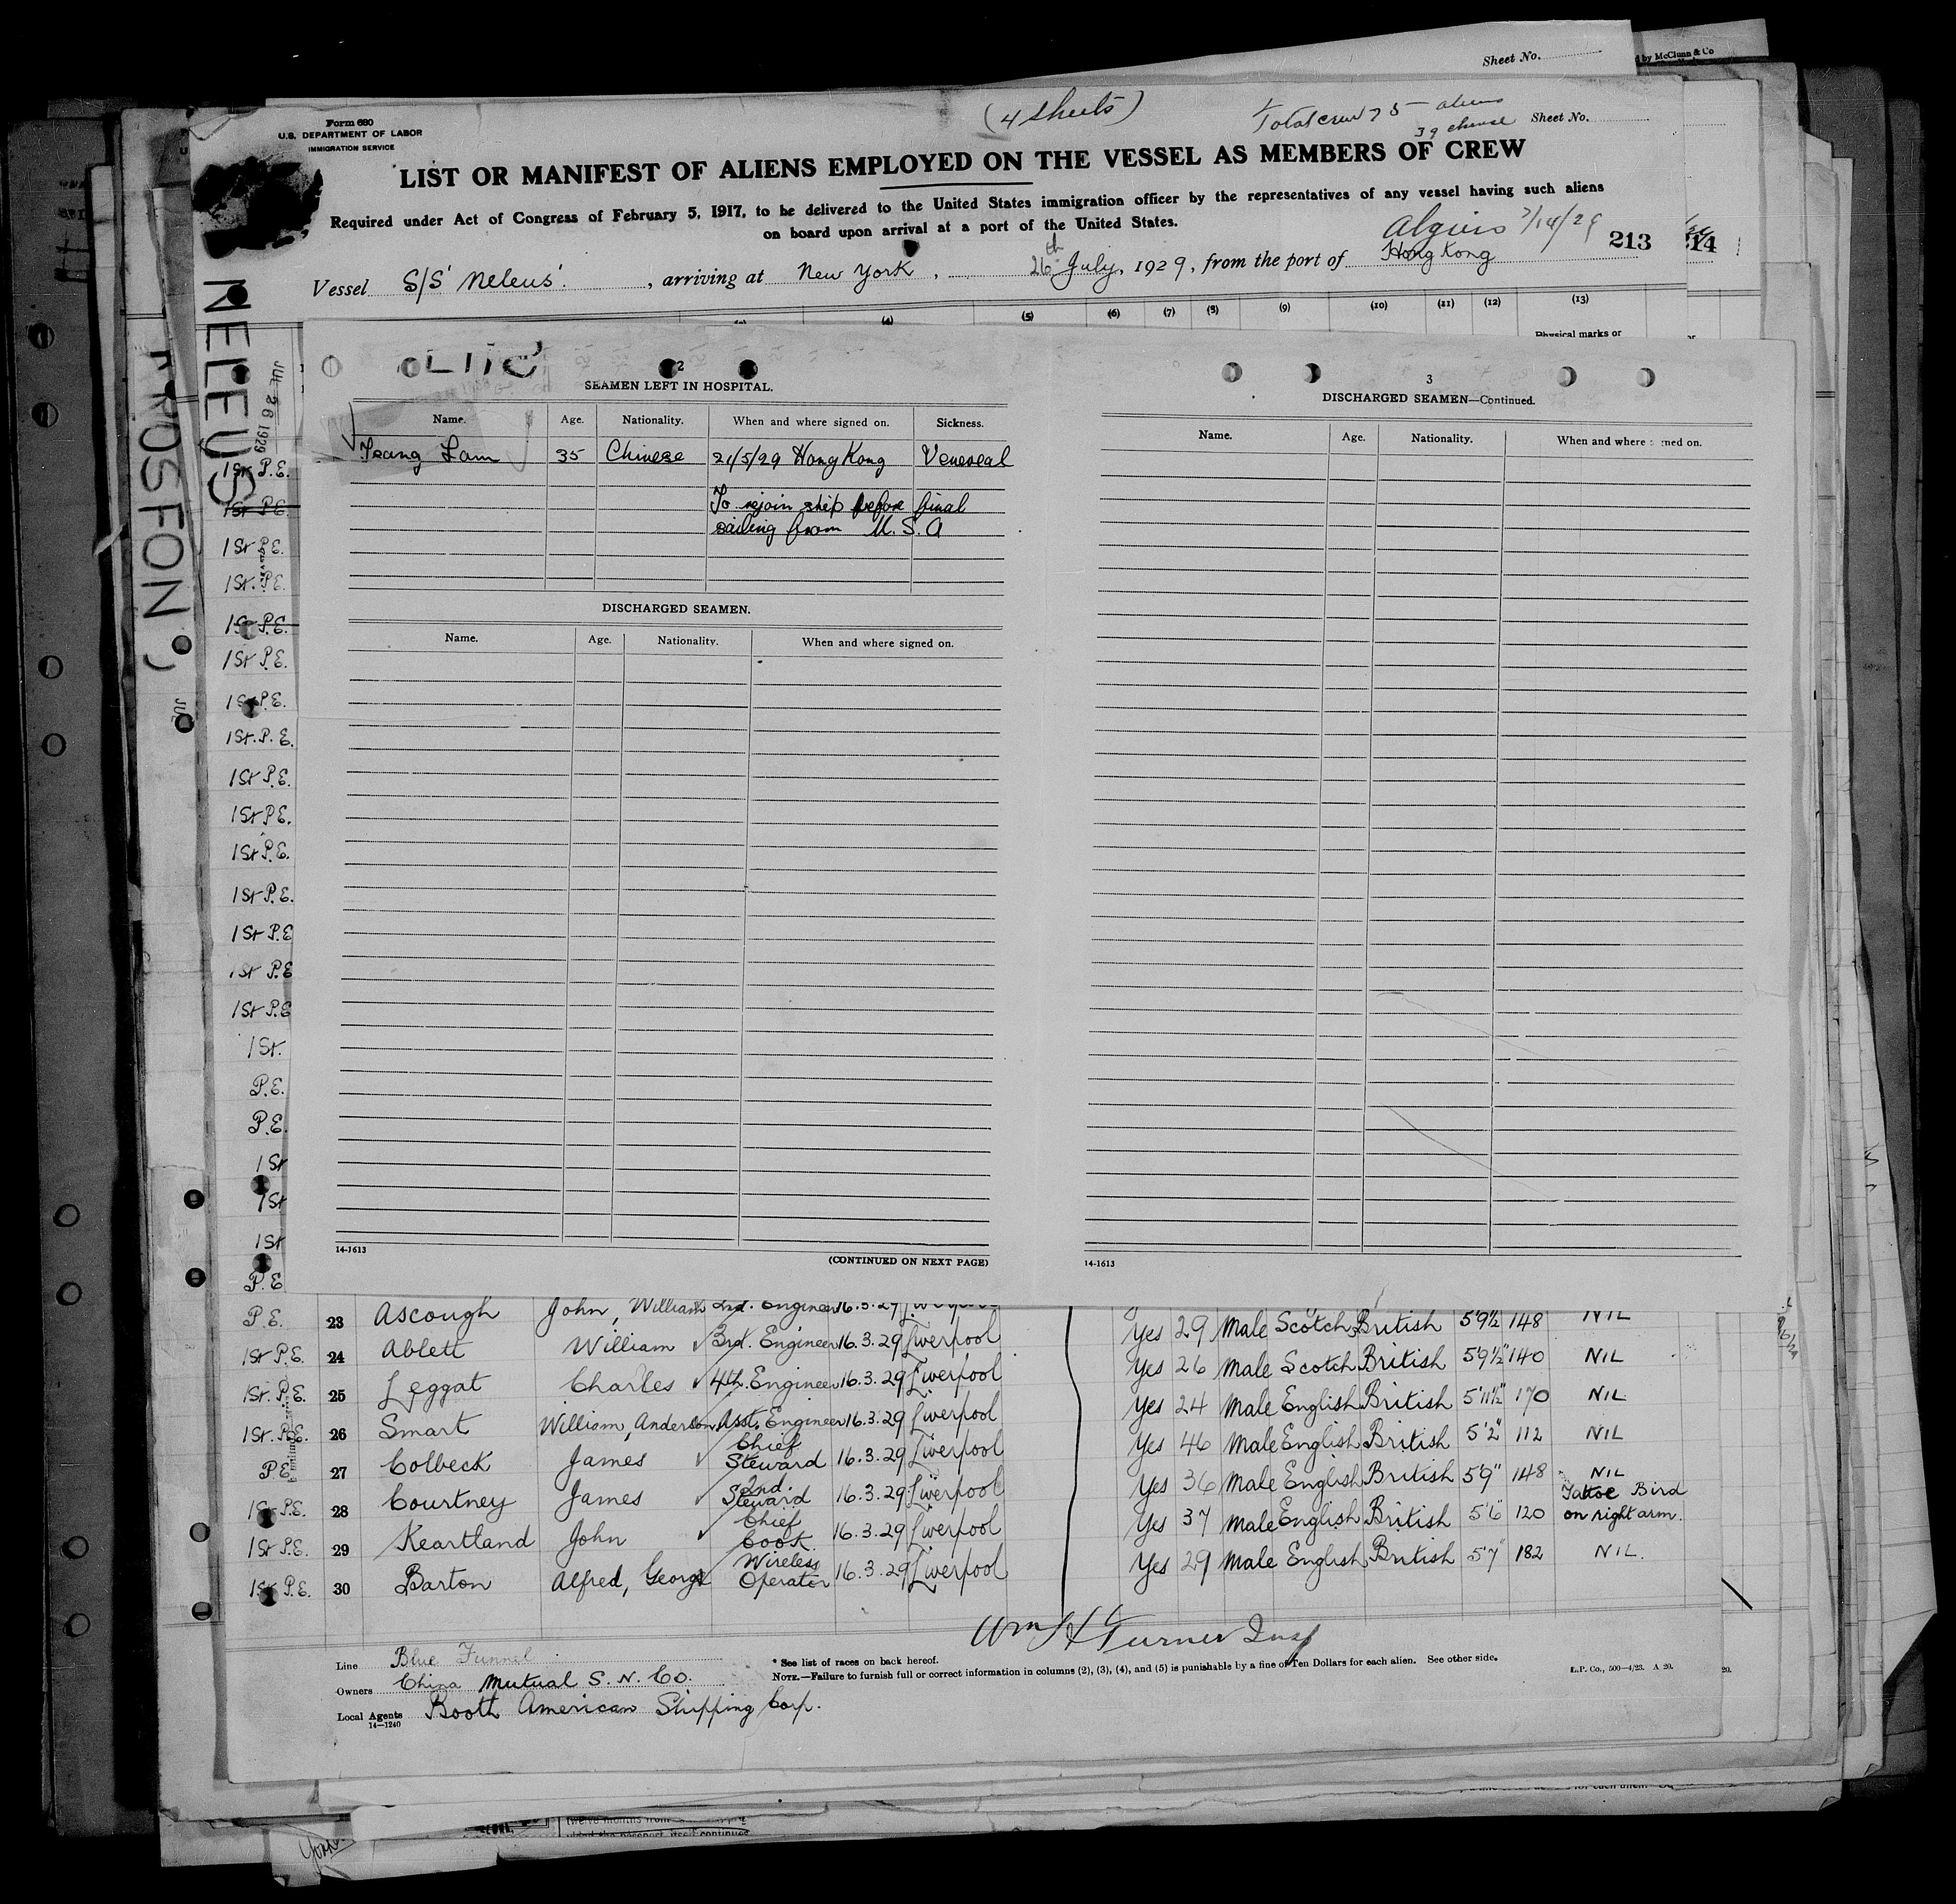 Sheet No.
d by McClunn & Co
(4 sheets)
Total crew 75 aliens
39 chinese
Sheet No.
Form 680
U.S. DEPARTMENT OF LABOR
IMMIGRATION SERVICE
LIST OR MANIFEST OF ALIENS EMPLOYED ON THE VESSEL AS MEMBERS OF CREW
Required under Act of Congress of February 5, 1917, to be delivered to the United States immigration officer by the representatives of any vessel having such aliens
on board upon arrival at a port of the United States.
Algiers 7/14/29
213
214
Vessel S/S 'Neleus', arriving at New York, 26th July, 1929, from the port of Hong Kong
(4) (5) (6) (7) (8) (9) (10) (11) (12) (13)
Physical marks or
NELEUS
JUL 26 1929
ROSFON)
2
SEAMEN LEFT IN HOSPITAL.
Name. Age. Nationality. When and where signed on. Sickness.
Tsang Lam 35 Chinese 21/5/29 Hong Kong Venereal
To rejoin ship before final
sailing from U.S.A
DISCHARGED SEAMEN.
Name. Age. Nationality. When and where signed on.
14-1613
(CONTINUED ON NEXT PAGE)
3
DISCHARGED SEAMEN—Continued.
Name. Age. Nationality. When and where signed on.
14-1613
1St P.E.
1St P.E.
1St P.E.
1St. P.E.
1St P.E.
1St P.E.
1St P.E.
1St. P.E.
1St P.E.
1St P.E.
1St P.E.
1St P.E.
1St P.E
1St P.E
1St P.E
1St.
P.E.
P.E.
1St
1St
1St
P.E
P.E. 23 Ascough John, William 2nd. Engineer 16.3.29 Liverpool Yes 29 Male Scotch British 5'9½ 148 NIL
1St P.E. 24 Ablett William 3rd. Engineer 16.3.29 Liverpool Yes 26 Male Scotch British 5'9½" 140 NIL
1St. P.E. 25 Leggat Charles 4th. Engineer 16.3.29 Liverpool Yes 24 Male English British 5'11½" 170 NIL
1St. P.E. 26 Smart William, Anderson Asst. Engineer 16.3.29 Liverpool Yes 46 Male English British 5'2" 112 NIL
P.E. 27 Colbeck James Chief Steward 16.3.29 Liverpool Yes 36 Male English British 5'9" 148 NIL
1St P.E. 28 Courtney James 2nd. Steward 16.3.29 Liverpool Yes 37 Male English British 5'6" 120 Tattoe Bird on right arm.
1St P.E. 29 Keartland John Chief Cook 16.3.29 Liverpool Yes 29 Male English British 5'7" 182 NIL.
1St P.E. 30 Barton Alfred, George Wireless Operator 16.3.29 Liverpool
Wm H Turner Insp
Line Blue Funnel
Owners China Mutual S.N.Co.
Local Agents Booth American Shipping Corp.
14—1240
* See list of races on back hereof.
NOTE.—Failure to furnish full or correct information in columns (2), (3), (4), and (5) is punishable by a fine of Ten Dollars for each alien. See other side.
L.P. Co., 500—4/23. A 20.
20.
twelve months from
York